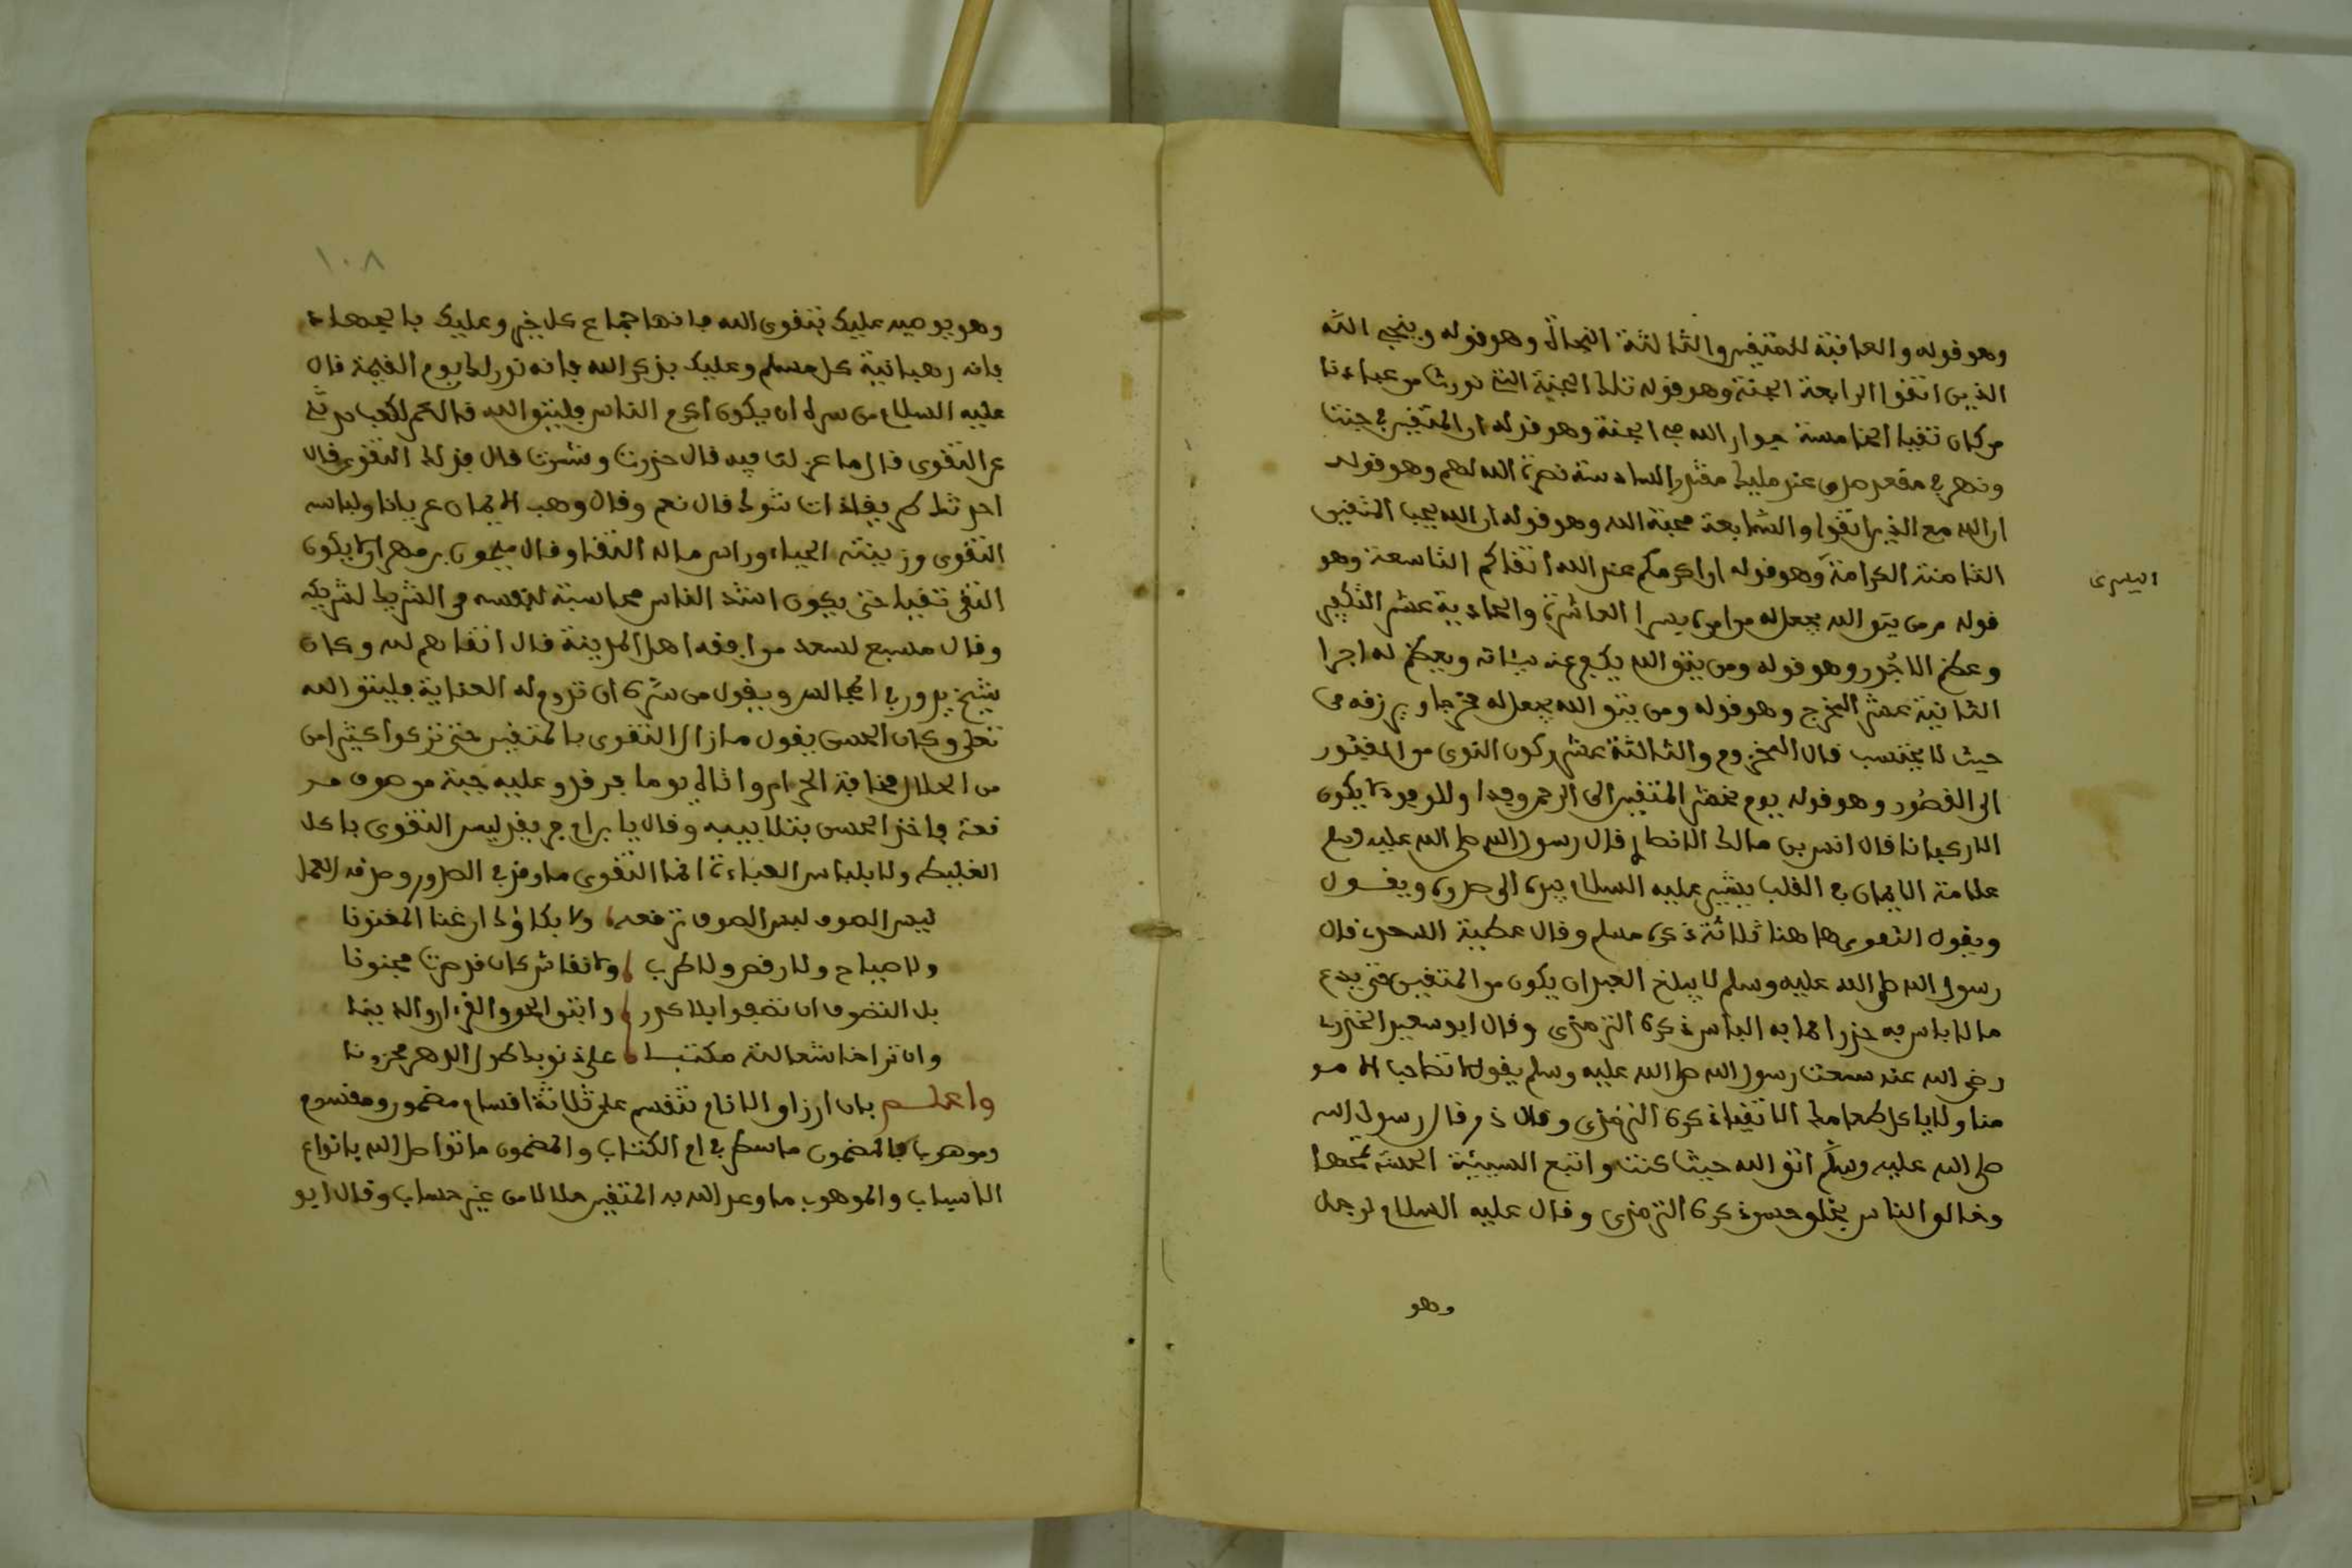 وهو قوله والعاقبة للمتقين والثالثة النجاة وهو قوله وينجي الله
الذين اتقوا الرابعة الجنة وهو قوله تلك الجنة التي نورث من عبادنا
من كان تقيا الخامسة جوار الله في الجنة وهو قوله ان المتقين في جنت
ونهر في مقعد صدق عند مليك مقتدر السادسة نصرة الله لهم وهو قوله
ان الله مع الذين اتقوا والسابعة محبة الله وهو قوله ان الله يحب المتقين
الثامنة الكرامة وهو قوله ان اكرمكم عند الله اتقاكم التاسعة وهو
اليسرى
قوله ومن يتق الله يجعل له من امره يسرا العاشرة والحادية عشر التكفير
وعظم الاجور وهو قوله ومن يتق الله يكفر عنه سيئاته ويعظم له اجرا
الثانية عشر المخرج وهو قوله ومن يتق الله يجعل له مخرجا ويرزقه من
حيث لا يحتسب قال المخزوم والثالثة عشر ركون النوى من المفشور
الى القصور وهو قوله يوم نحشر المتقين الى الرحمن وفدا والوفود لا يكون
الا ركبانا قال انس بن مالك الانصار قال رسول الله صلى الله عليه وسلم
علامة الايمان في القلب يشير عليه السلام بيده الى صدره ويقول
ويقول التقوى هاهنا ثلاثة ذكره مسلم وقال عطية السعدي قال
رسول الله صلى الله عليه وسلم لا يبلغ العبد ان يكون من المتقين حتى يدع
ما لا باس به حذرا لما به الباس ذكره الترمذي وقال ابو سعيد الخدري
رضي الله عنه سمعت رسول الله صلى الله عليه وسلم يقول لا تصاحب الا مو
منا ولا ياكل طعامك الا تقيا ذكره الترمذي وقال ذر قال رسول الله
صلى الله عليه وسلم اتق الله حيث كنت واتبع السيئة الحسنة تمحها
وخالق الناس بخلق حسن ذكره الترمذي وقال عليه السلام لرجل
وهو
١٠٨
وهو يوصيه عليك بتقوى الله فانها جماع كل خير وعليك بالجهاد
فانه رهبانية كل مسلم وعليك بذكر الله فانه نور لك يوم القيمة قال
عليه السلام من سره ان يكون اكرم الناس فليتق الله قال عمر لكعب حدثني
عن التقوى قال اما عزلت فيه قال حذرت وشمرت قال فذلك التقوى قال
احدثك طريقا ذات شوك قال نعم وقال وهب الايمان عريانا ولباسه
التقوى وزينته الحياء وراس ماله التقا وقال ميمون بن مهران لا يكون
التقي تقيا حتى يكون اشد الناس محاسبة لنفسه من الشريك لشريكه
وقال مسبع لسعد من افقه اهل المدينة قال اتقاهم لله وكان
شيخ يدور في المجالس ويقول من سره ان تدوم له العناية فليتق الله
تعلى وكان الحسن يقول مازال التقوى بالمتقين حتى تركوا كثيرا من
من الحلال مخافة الحرام واتى لي يوما فرقد وعليه جبة من صوف مر
قعة فاخذ الحسن بتلابيبه وقال يابن ام فريقد ليس التقوى باكل
الغليظ ولا بلباس العباءة انما التقوى ما وقر في الصدور وصدقه العمل
ليس الصوف لبس الصوف ترقعه ولا بكاؤك ان غنا المغنونا
ولا صياح ولا رقص ولا طرب ولا تغاش كان قد صرت مجنونا
بل التصوف ان تصفوا بلا كدر واتبع الحق والقرءان والدينا
وان ترا خاشعا لله مكتئبا على ذنوبك طول الدهر محزونا
واعلم بان ارزاق الانام تنقسم على ثلاثة اقسام مضمون ومقسوم
وموهوب فالمضمون ماسطر في ام الكتاب والمضمون ما تواصل الله بانواع
الاسباب والموهوب ما وعد الله به المتقين حلالا من غير حساب وقال ابو